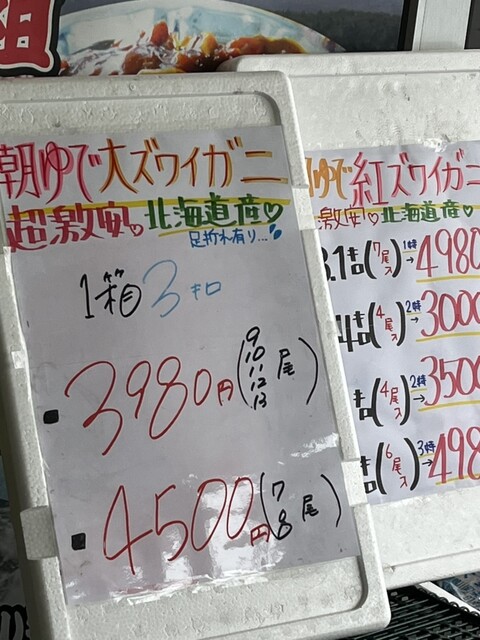 朝ゆで大ズワイガニ
超激安♡北海道産♡
足折れ有り…
1箱3キロ
■3980円(9 10 11 12 13尾)
■4500円(7 8尾)
ゆで紅ズワイガニ
激安♡北海道産♡
3.1キロ(7尾入)1特→4980
4キロ(4尾入)2特→3000
キロ(4尾入)2特→3500
キロ(6尾入)3特→498